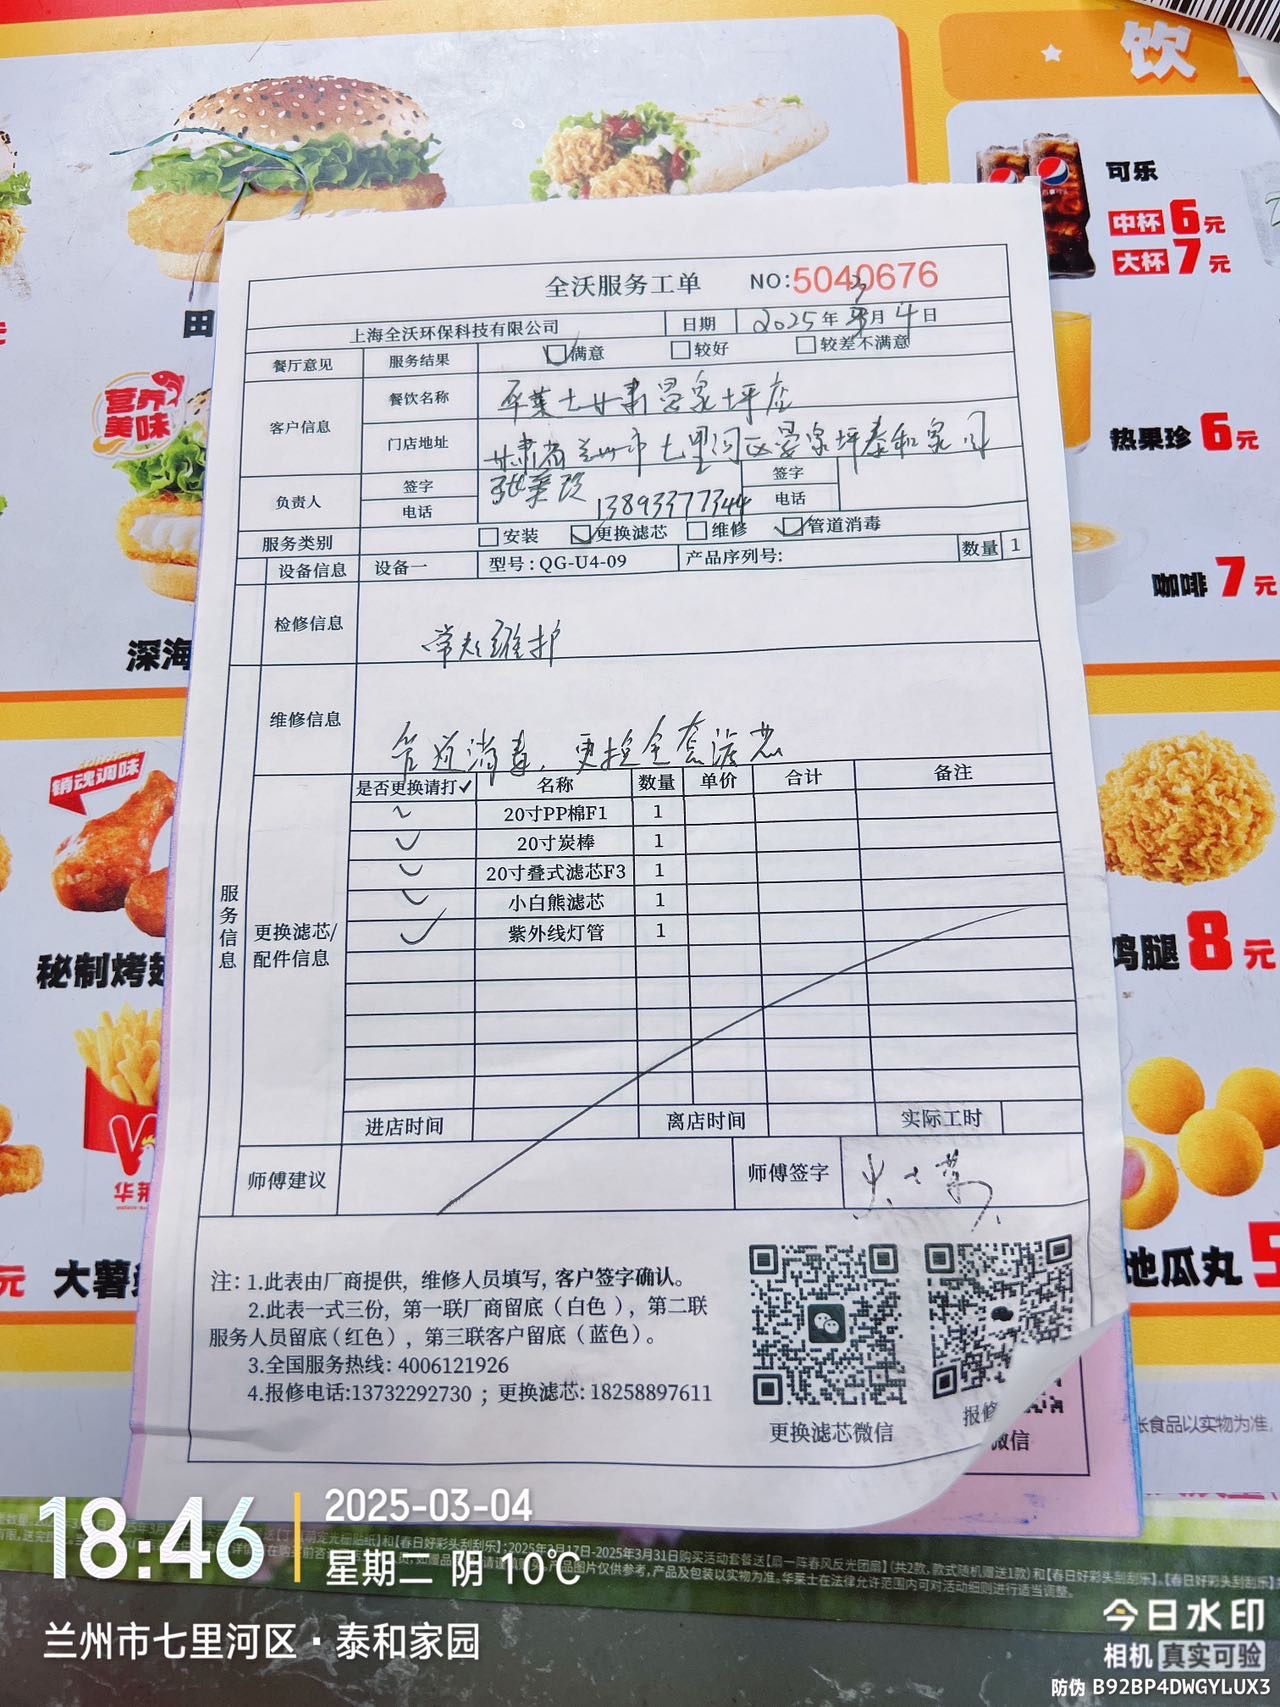 饮
可乐
中杯 6元
大杯 7元
田
营养
美味
热果珍 6元
咖啡 7元
深海
销魂调味
秘制烤
鸡腿 8元
华莱
元 大薯
地瓜丸 5
全沃服务工单 NO:5040676
上海全沃环保科技有限公司 日期 2025年3月4日
餐厅意见 服务结果 ☑满意 □较好 □较差不满意
客户信息 餐饮名称 华莱士甘肃晏家坪店
门店地址 甘肃省兰州市七里河区晏家坪泰和家园
负责人 签字 签字
电话 13893377344 电话
服务类别 □安装 ☑更换滤芯 □维修 ☑管道消毒
设备信息 设备一 型号:QG-U4-09 产品序列号: 数量 1
检修信息 常规维护
维修信息 管道消毒、更换全套滤芯
服务信息
更换滤芯/
配件信息
是否更换请打✓ 名称 数量 单价 合计 备注
✓ 20寸PP棉F1 1
✓ 20寸炭棒 1
✓ 20寸叠式滤芯F3 1
✓ 小白熊滤芯 1
✓ 紫外线灯管 1
进店时间 离店时间 实际工时
师傅建议 师傅签字
注: 1.此表由厂商提供, 维修人员填写, 客户签字确认。
2.此表一式三份, 第一联厂商留底(白色), 第二联
服务人员留底(红色), 第三联客户留底(蓝色)。
3.全国服务热线: 4006121926
4.报修电话:13732292730 ; 更换滤芯: 18258897611
更换滤芯微信
报修
微信
食品以实物为准
2025年3月17日-2025年3月31日购买活动套餐送【扇一阵春风反光团扇】(共2款, 款式随机赠送1款)和【春日好彩头刮刮乐】
产品图片仅供参考, 产品及包装以实物为准。华莱士在法律允许范围内可对活动细则进行适当调整。
18:46
2025-03-04
星期二 阴 10℃
兰州市七里河区·泰和家园
今日水印
相机 真实可验
防伪 B92BP4DWGYLUX3